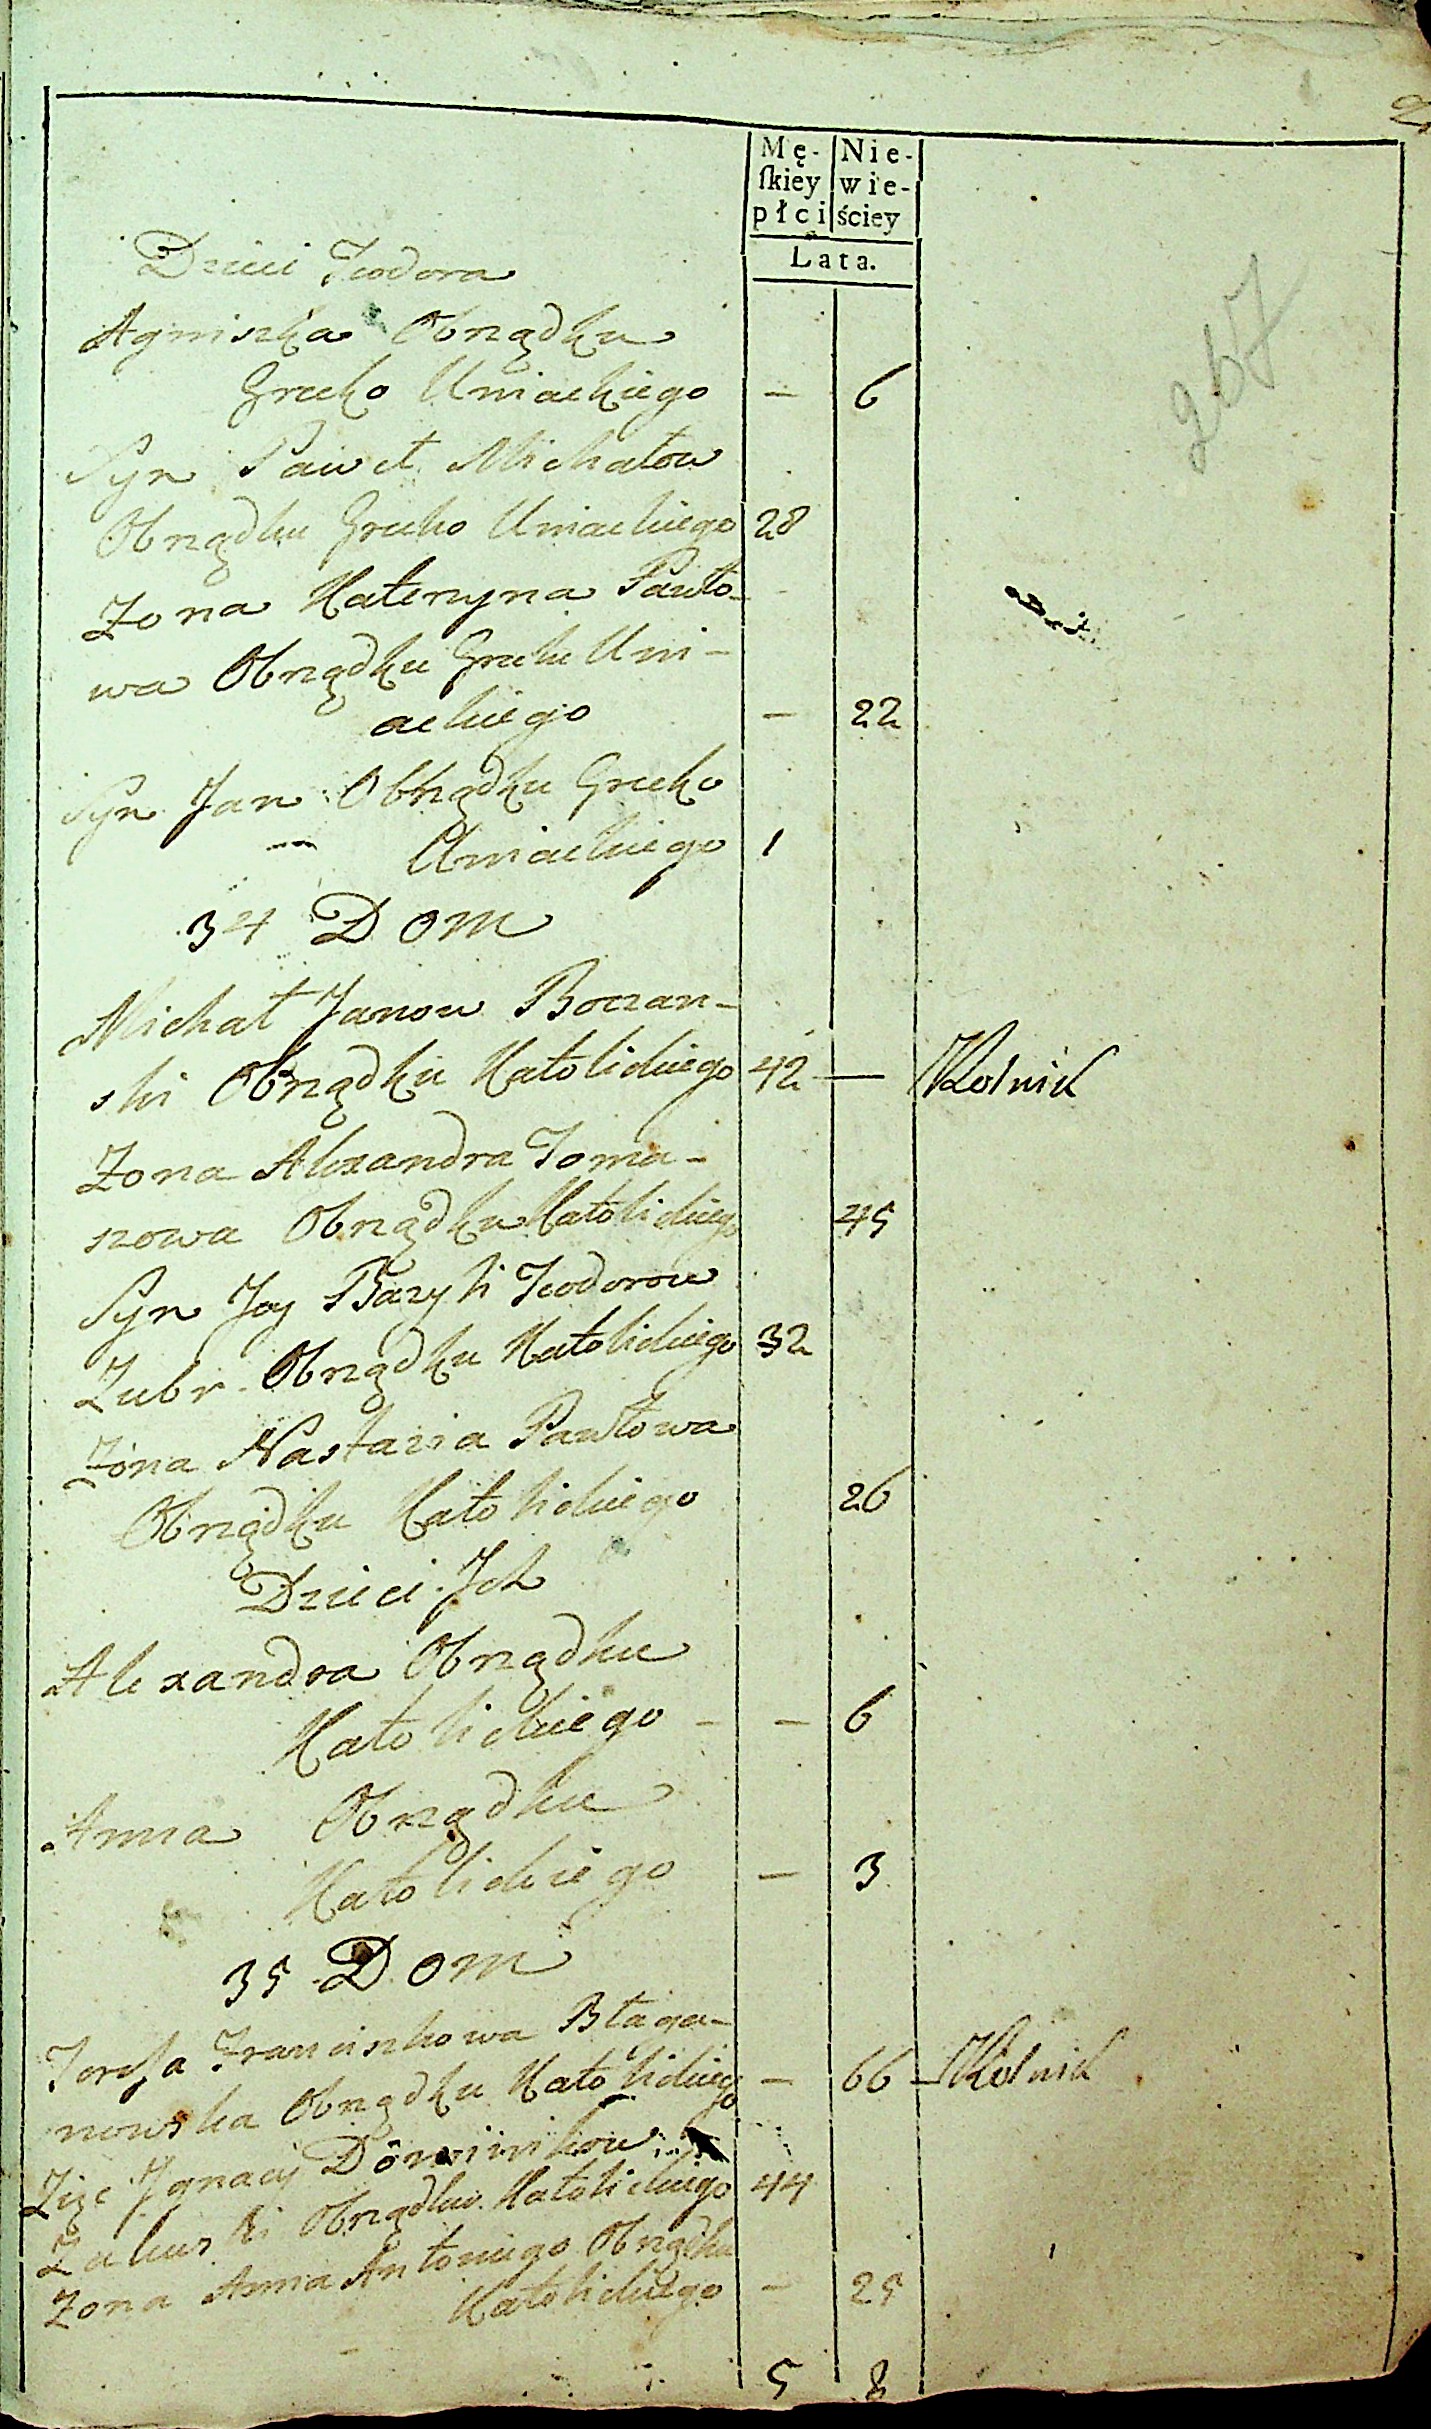 Mę- Nie-
ſkiey wie-
płci ściey
Lata.
267
Dzieci Teodora
Agniszka Obrządku
Grecko Uniackiego — 6
Syn Paweł Michałow
Obrządku Grecko Uniackiego 28
Zona Kateryna Pawło-
wa Obrządku Grecko Uni-
ackiego — 22
Syn Jan Obrządku Grecko
Uniackiego 1
34 Dom
Michał Janow Boczan-
ski Obrządku Katolickiego 42 — Rolnik
Zona Alexandra Toma-
szowa Obrządku Katolickiego 45
Syn Jey Bazyli Teodorow
Zubr Obrządku Katolickiego 32
Zona Nastazia Pawłowa
Obrządku Katolickiego 26
Dzieci Jch
Alexandra Obrządku
Katolickiego — — 6
Anna Obrządku
Katolickiego — 3
35 Dom
Franciszkowa Błaga-
nowska Obrządku Katolickiego — 66 — Rolnik
Zięc Jgnacy Dominikow
Obrządku Katolickiego 44
Zona Anna Antoniego Obrządku
Katolickiego — 25
5 8